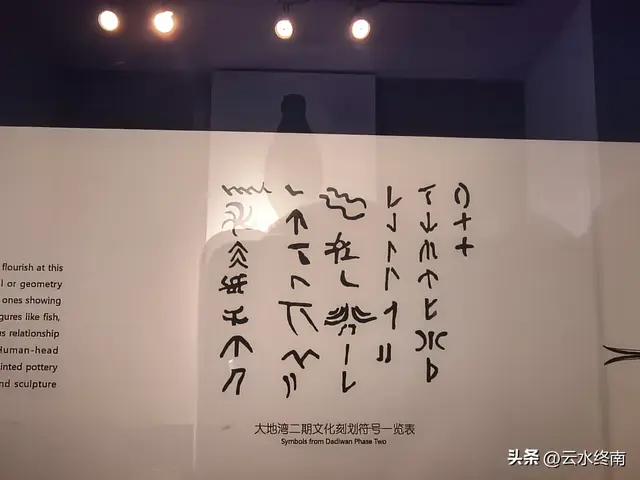 flourish at this
l or geometry
ones showing
gures like fish,
us relationship
Human-head
inted pottery
nd sculpture
大地湾二期文化刻划符号一览表
Symbols from Dadiwan Phase Two
头条 @云水终南